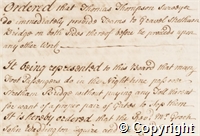 Ordered that Thomas Thompson Surveyor
do immediately provide Teams to Gravel Stretham
Bridge on both Sides thereof before he proceeds upon
any other Work
It being represented to this Board that many
Foot Passengers do in the Night time pass over
Stretham Bridge without paying any Toll thereon
for want of a proper pair of Gates to stop them
It is hereby ordered that the Revd. Mr.
John Waddington Esquire and